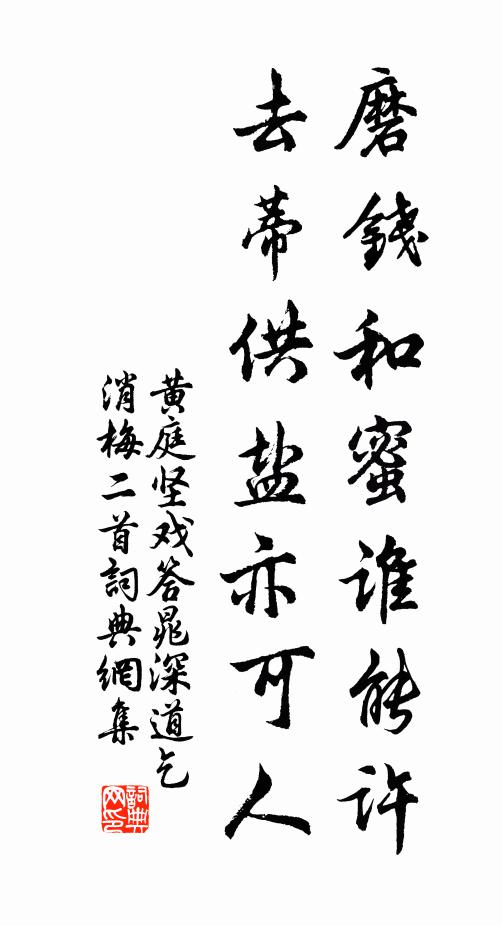 磨錢和蜜谁能许
去蒂供盐亦可人
黄庭坚戏答晁深道乞
消梅二首詞典網集
詞典
网印